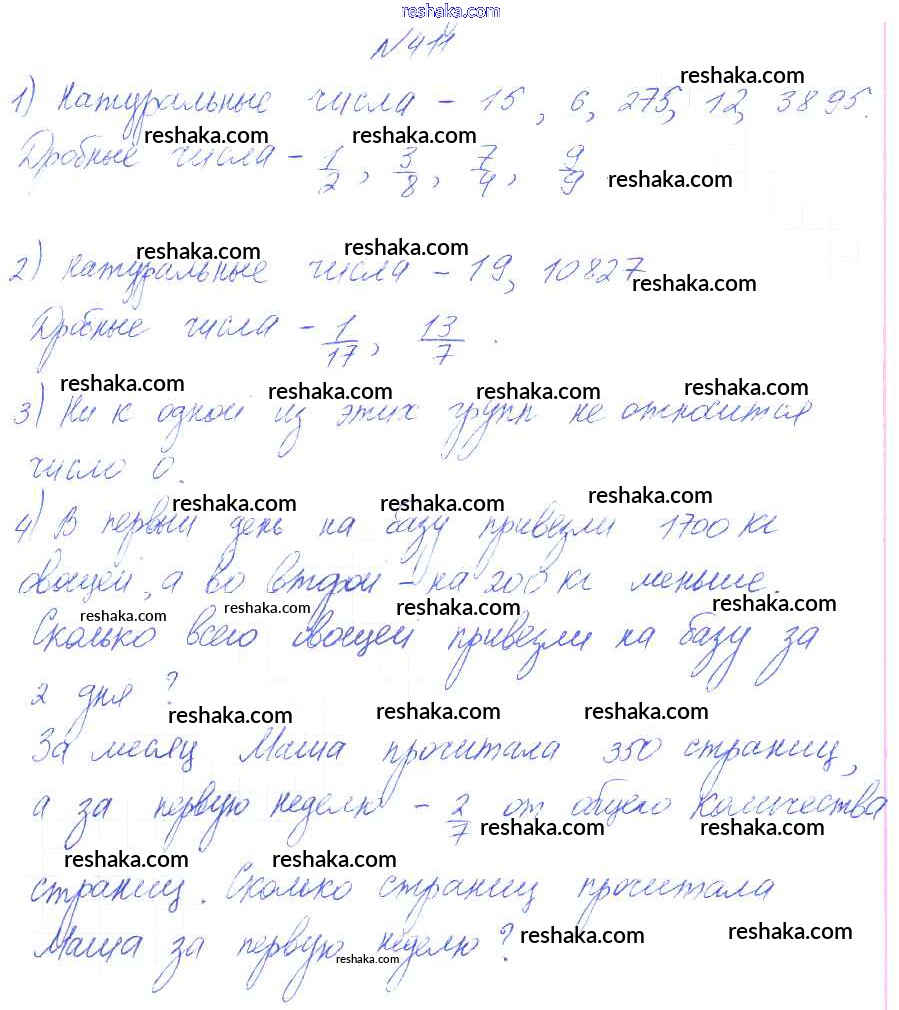 reshaka.com
№411
reshaka.com
1) Натуральные числа – 15, 6, 275, 12, 3895.
reshaka.com reshaka.com
Дробные числа – 1/2, 3/8, 7/4, 9/9
reshaka.com
reshaka.com reshaka.com
2) Натуральные числа – 19, 10827
reshaka.com
Дробные числа – 1/17, 13/7.
reshaka.com reshaka.com reshaka.com reshaka.com
3) Ни к одной из этих групп не относится
число 0.
reshaka.com reshaka.com reshaka.com
4) В первый день на базу привезли 1700 кг
овощей, а во второй – на 200 кг меньше.
reshaka.com reshaka.com reshaka.com reshaka.com
Сколько всего овощей привезли на базу за
2 дня?
reshaka.com reshaka.com reshaka.com
За месяц Маша прочитала 350 страниц,
а за первую неделю – 2/7 от общего количества
reshaka.com reshaka.com
reshaka.com reshaka.com
страниц. Сколько страниц прочитала
Маша за первую неделю?
reshaka.com reshaka.com reshaka.com